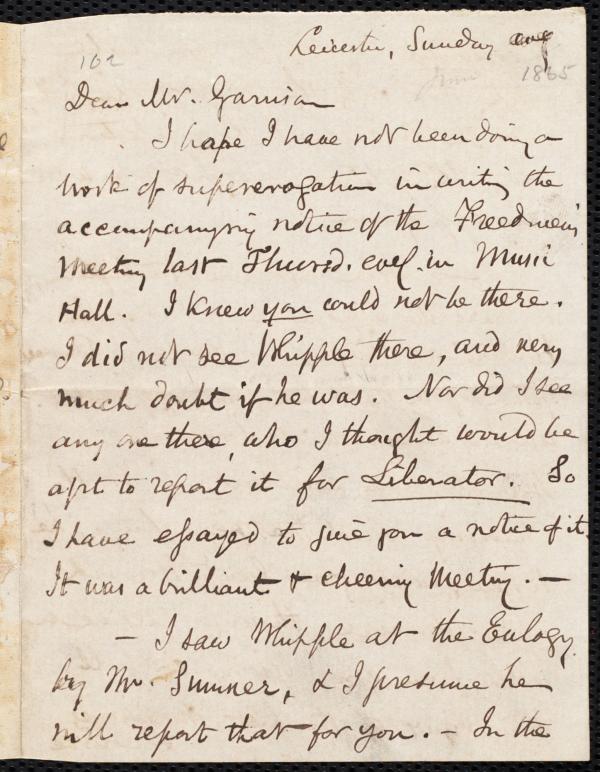 Leicester, Sunday evg
102 June 1865
Dear Mr. Garrison
I hope I have not been doing a
work of supererogation in writing the
accompanying notice of the Freedmen's
Meeting last Thursd. eveg. in Music
Hall. I knew you could not be there.
I did not see Whipple there, and very
much doubt if he was. Nor did I see
any one there, who I thought would be
apt to report it for Liberator. So
I have essayed to give you a notice of it.
It was a brilliant & cheering Meeting. —
— I saw Whipple at the Eulogy
by Mr. Sumner, & I presume he
will report that for you. – In the